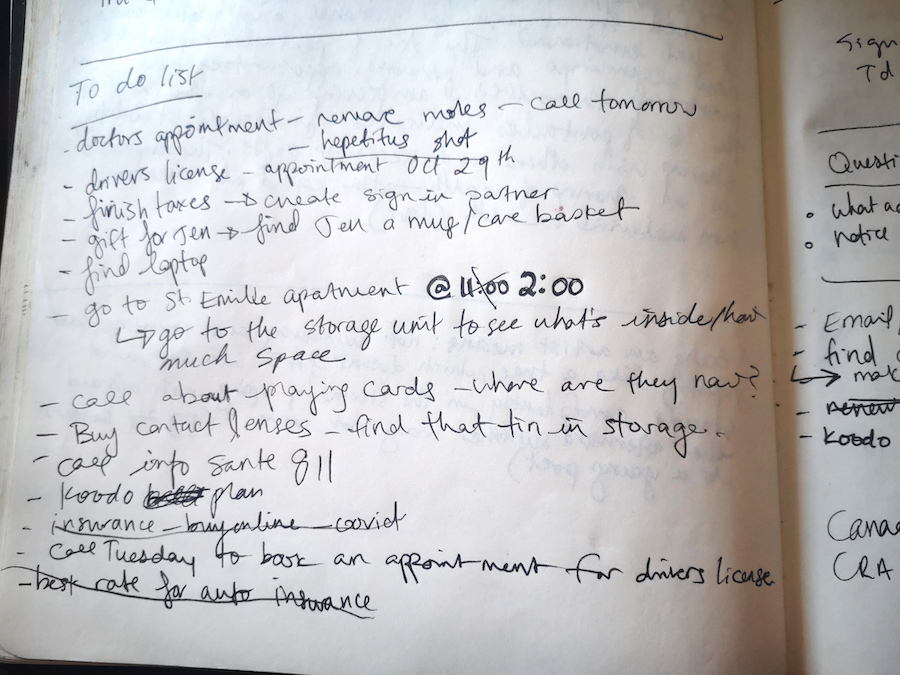 To do list
- doctors appointment - remove moles - call tomorrow
- hepetitus shot
- drivers license - appointment Oct 29th
- finish taxes → create sign in partner
- gift for Jen → find Jen a mug/care basket
- find laptop
- go to St. Emilie apatment @ 11:00 2:00
↳ go to the storage unit to see what's inside/how
much space
- call about playing cards - where are they now?
- Buy contact lenses - find that tin in storage.
- call info Sante 811
- Koodo plan
- insurance - buy online - covid
- call Tuesday to book an appointment for drivers license
- best rate for auto insurance
Sign
Td
Questi
• what a
• notice
- Email/
- find
→ mak
- renew
- Koodo
Cana
CRA